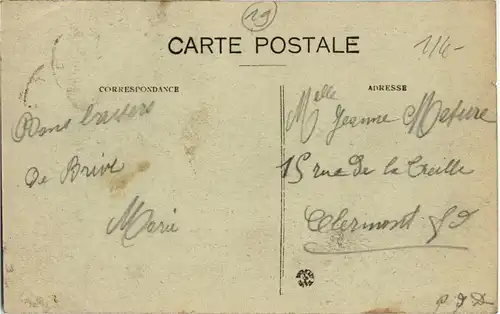 19
CARTE POSTALE
1/6-
CORRESPONDANCE
ADRESSE
Bons baisers
de Brive
Marie
Melle Jeanne
15 rue de la Treille
Clermont Fd
P. d D.